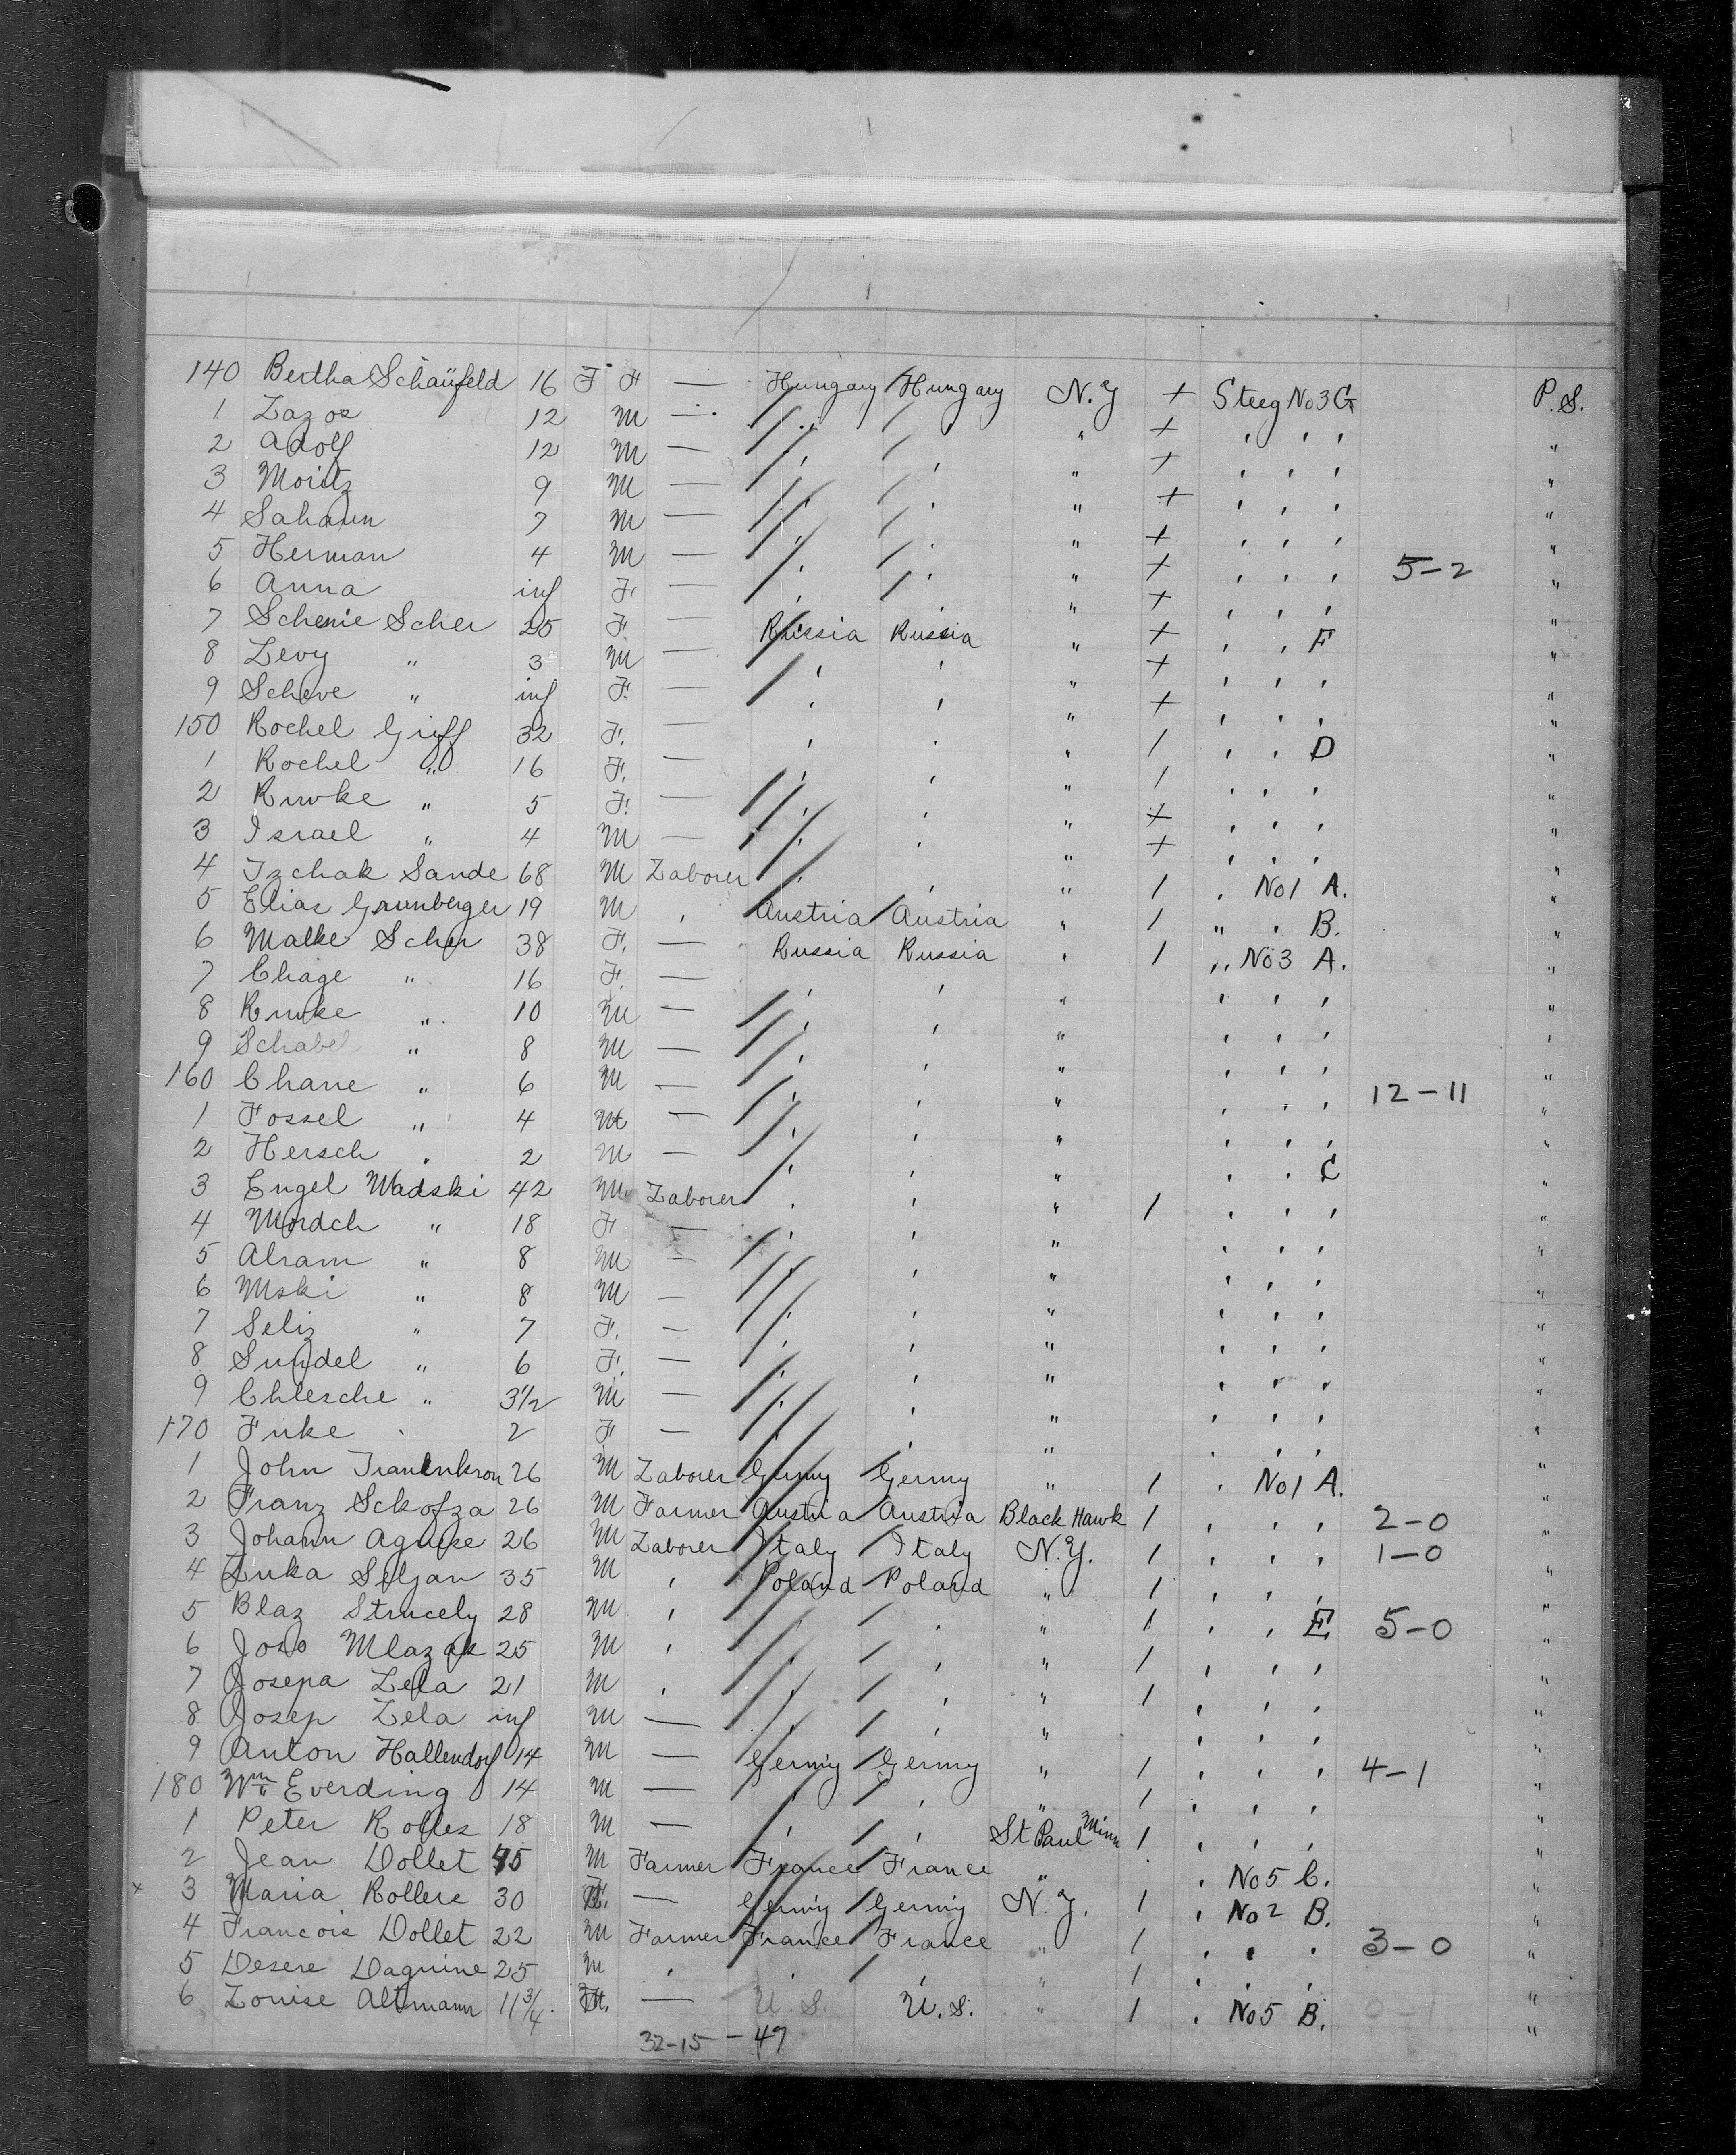 140 Bertha Schaüfeld 16 F F — Hungary Hungary N.Y + Steeg No 3 G P.S.
1 Lazos 12 M — " " " + " " " "
2 Adolf 12 M — " " " + " " " "
3 Moritz 9 M — " " " + " " " "
4 7 M — " " " + " " " "
5 Herman 4 M — " " " + " " " 5-2 "
6 Anna inf F — " " " + " " " "
7 Schenie Scher 25 F — Russia Russia " + " " F "
8 Levy " 3 M — " " " + " " " "
9 Scheve " inf F. — " " " + " " " "
150 Rochel Griff 32 F. — " " " 1 " " D "
1 Rochel " 16 F. — " " " 1 " " " "
2 Riwke " 5 F. — " " " + " " " "
3 Israel " 4 M — " " " + " " " "
4 Izchak Sande 68 M Laborer " " " 1 " No 1 A. "
5 Elias Grunberger 19 M " Austria Austria " 1 " " B. "
6 Malke Scher 38 F. — Russia Russia " 1 " No 3 A. "
7 Chage " 16 F. — " " " " " " "
8 Riwke " 10 M — " " " " " " "
9 Schabel " 8 M — " " " " " " "
160 Chane " 6 M — " " " " " " 12-11 "
1 Fossel " 4 M — " " " " " " "
2 Hersch " 2 M — " " " " " C "
3 Engel Wadski 42 M Laborer " " " 1 " " " "
4 Mordch " 18 F — " " " " " " "
5 Alram " 8 M — " " " " " " "
6 Mski " 8 M — " " " " " " "
7 Seliz " 7 F. — " " " " " " "
8 Sundel " 6 F. — " " " " " " "
9 Chlesche " 3 1/2 M — " " " " " " "
170 Finke " 2 F — " " " " " " "
1 John 26 M Laborer Germy Germy " 1 " No 1 A. "
2 Franz Sckofza 26 M Farmer Austria Austria Black Hawk 1 " " " 2-0 "
3 Johann Agnese 26 M Laborer Italy Italy N.Y. 1 " " " 1-0 "
4 Luka Seljan 35 M " Poland Poland " 1 " " " "
5 Blaz Strucely 28 M " " " " 1 " " E 5-0 "
6 Joso Mlazak 25 M " " " " 1 " " " "
7 Josepa Lela 21 M " " " " 1 " " " "
8 Josep Lela inf M — " " " " " " "
9 Anton Hallendorf 14 M — Germy Germy " 1 " " " 4-1 "
180 Wm Everding 14 M — " " " 1 " " " "
1 Peter Rolles 18 M — " " St Paul Minn 1 " " " "
2 Jean Dollet 45 M Farmer France France " " No 5 C. "
x 3 Maria Rollere 30 F. — Germy Germy N.Y. 1 " No 2 B. "
4 Francois Dollet 22 M Farmer France France " 1 " " " 3-0 "
5 Desere Daguine 25 M " " " " 1 " " " "
6 Louise Altmann 11 3/4 — U.S. U.S. " 1 " No 5 B. 0-1 "
32-15 - 47